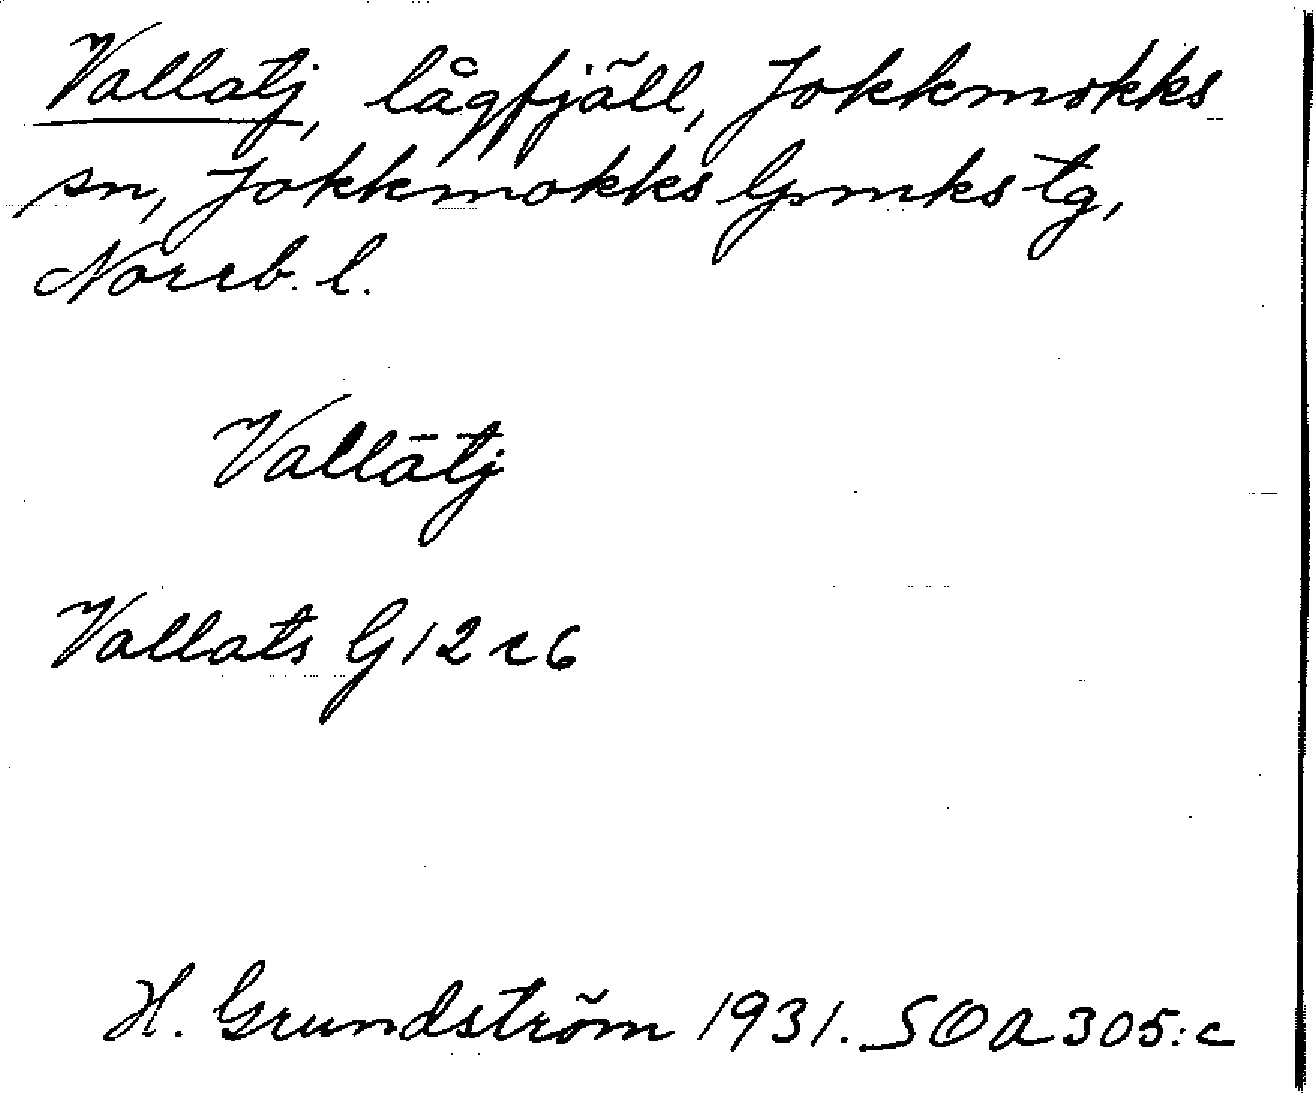 Vallatj, lågfjäll, Jokkmokks
sn, Jokkmokks Gmks tg,
Norrb. l.
Vallātj
Vallats G12c6
H. Grundström 1931. SOA 305:c